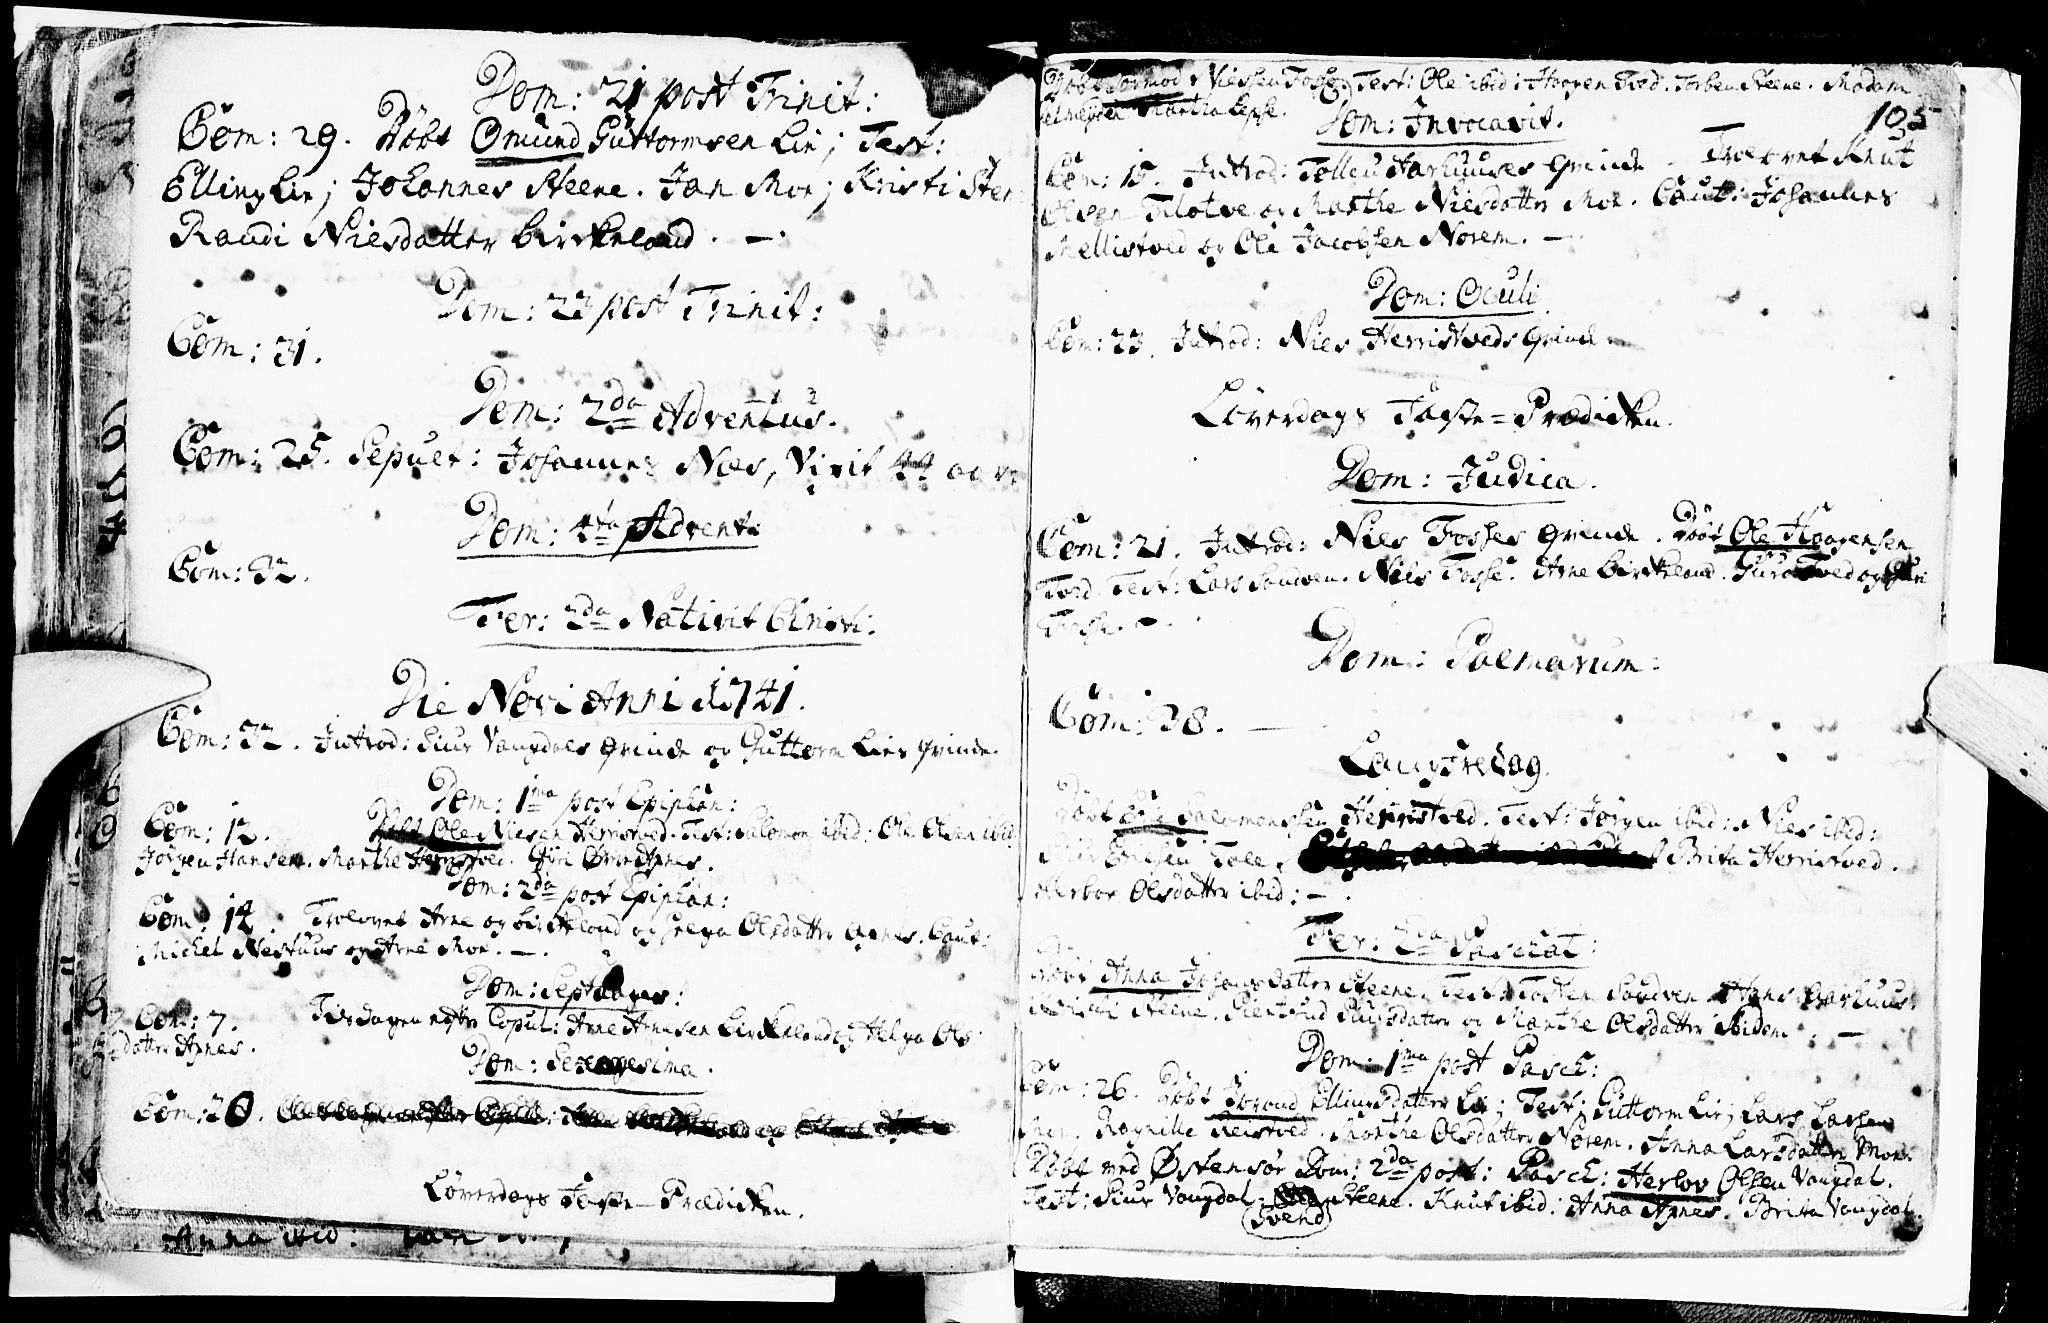 Dom: 21 post Trinit:
Com: 29. Döbt Omund Guttormsen Lie; Test:
Elling Lie; Johannes Steene. Jan Moe; Kristi Steen
Randi Nielsdatter Birkeland. —.
Dom: 23 post Trinit:
Com: 31.
Dom: 2da Adventus.
Com: 25. Sepult: Johannes Næs, Vixit 44
Dom: 4ta Advent:
Com: 32.
Fer: 2da Nativit Christi:
Die Novi Anni 1741.
Com: 32. Introd: Siur Vangdals Qvinde og Guttorm Lies Qvinde.
Dom: 1ma post Epiphan:
Com: 12. Döbt Ole Nielsen Herristved. Test: Salomon ibid: Ole Olsen ibid
Jörgen Hansen. Marthe Herristved. Guri Apnes.
Dom: 2da post Epiphan:
Com: 14. Trolovet Arne Birkeland og Helga Olsdatter Apnes. Caut:
Michel Nesthuus og Arne Moe. —.
Dom: Septuages:
Com: 7. Tisdagen efter Copul: Arne Arnesen Birkeland og Helga Ols
datter Apnes.
Dom: Sexagesima.
Com: 20.
Löverdags Faste-Prædicken.
Anna ibid:
Döbt Tormod Nielsen Fosse. Test: Ole ibid: Haagen Tved. Torben Steene. Madam
Martha Leppe.
105
Dom: Invocavit.
Com: 15. Introd: Tollev Aarhuuses Qvinde. Trolovet Knut
Olsen Tilotve og Marthe Nielsdatter Moe. Caut: Johannes
Mellistved og Ole Jacobsen Norem. —.
Dom: Oculi
Com: 23. Introd: Niels Herristveds Qvinde.
Löverdags Faste-Prædicken.
Dom: Judica.
Com: 21. Introd: Niels Fosses Qvinde. Döbt Ole Haagensen
Tved. Test: Lars Sandven. Niels Fosse. Arne Birkeland. Guro Tved og Guri
Fosse. —.
Dom: Palmarum:
Com: 38. —
Langfredag.
Döbt Salomonsen Herristved. Test: Jörgen ibid: Niels ibid:
Tole. Brita Herristved.
Olsdatter ibid: —.
Fer: 2da Paschat:
Döbt Anna Johansdatter Steene. Test: Tosten Sandven. Hans Aarhuus.
Kristi Steene. Siursdatter og Marthe Olsdatter ibidem. —
Dom: 1ma post Pasch:
Com: 26. Döbt Jorond Ellingsdatter Lie; Test: Guttorm Lie; Lars Larsen
Moe. Ragnille Reistved. Marthe Olsdatter Norem. Anna Larsdatter Moe.
Döbt ved Östensöe Dom: 2da post: Pasch: Herlov Olsen Vangdal.
Test: Siur Vangdal: Svend Steene. Knut ibid: Anna Apnes. Brita Vangdal.